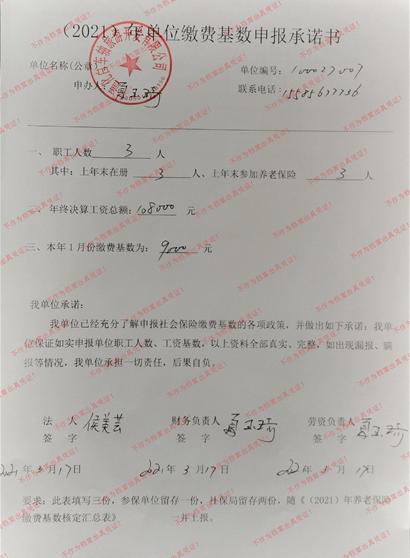 （2021）年单位缴费基数申报承诺书
单位名称(公章)
单位编号：100027007
申办人
联系电话：15585637736
一、职工人数 3 人
其中：上年末在册 3 人、上年末参加养老保险 3 人
二、年终决算工资总额：108000 元
三、本年1月份缴费基数为：9000 元
我单位承诺：
我单位已经充分了解申报社会保险缴费基数的各项政策，并做出如下承诺：我单
位保证如实申报单位职工人数、工资基数，以上资料全部真实、完整，如出现漏报、瞒
报等情况，我单位承担一切责任，后果自负。
法 人 侯美芸 财务负责人 劳资负责人
签 字 签 字 签 字
2021年3月17日 2021年3月17日 2021年 月17日
要求：此表填写三份，参保单位留存一份，社保局留存两份，随《（2021）年养老保险
缴费基数核定汇总表》 一并上报。
不作为档案出具凭证！